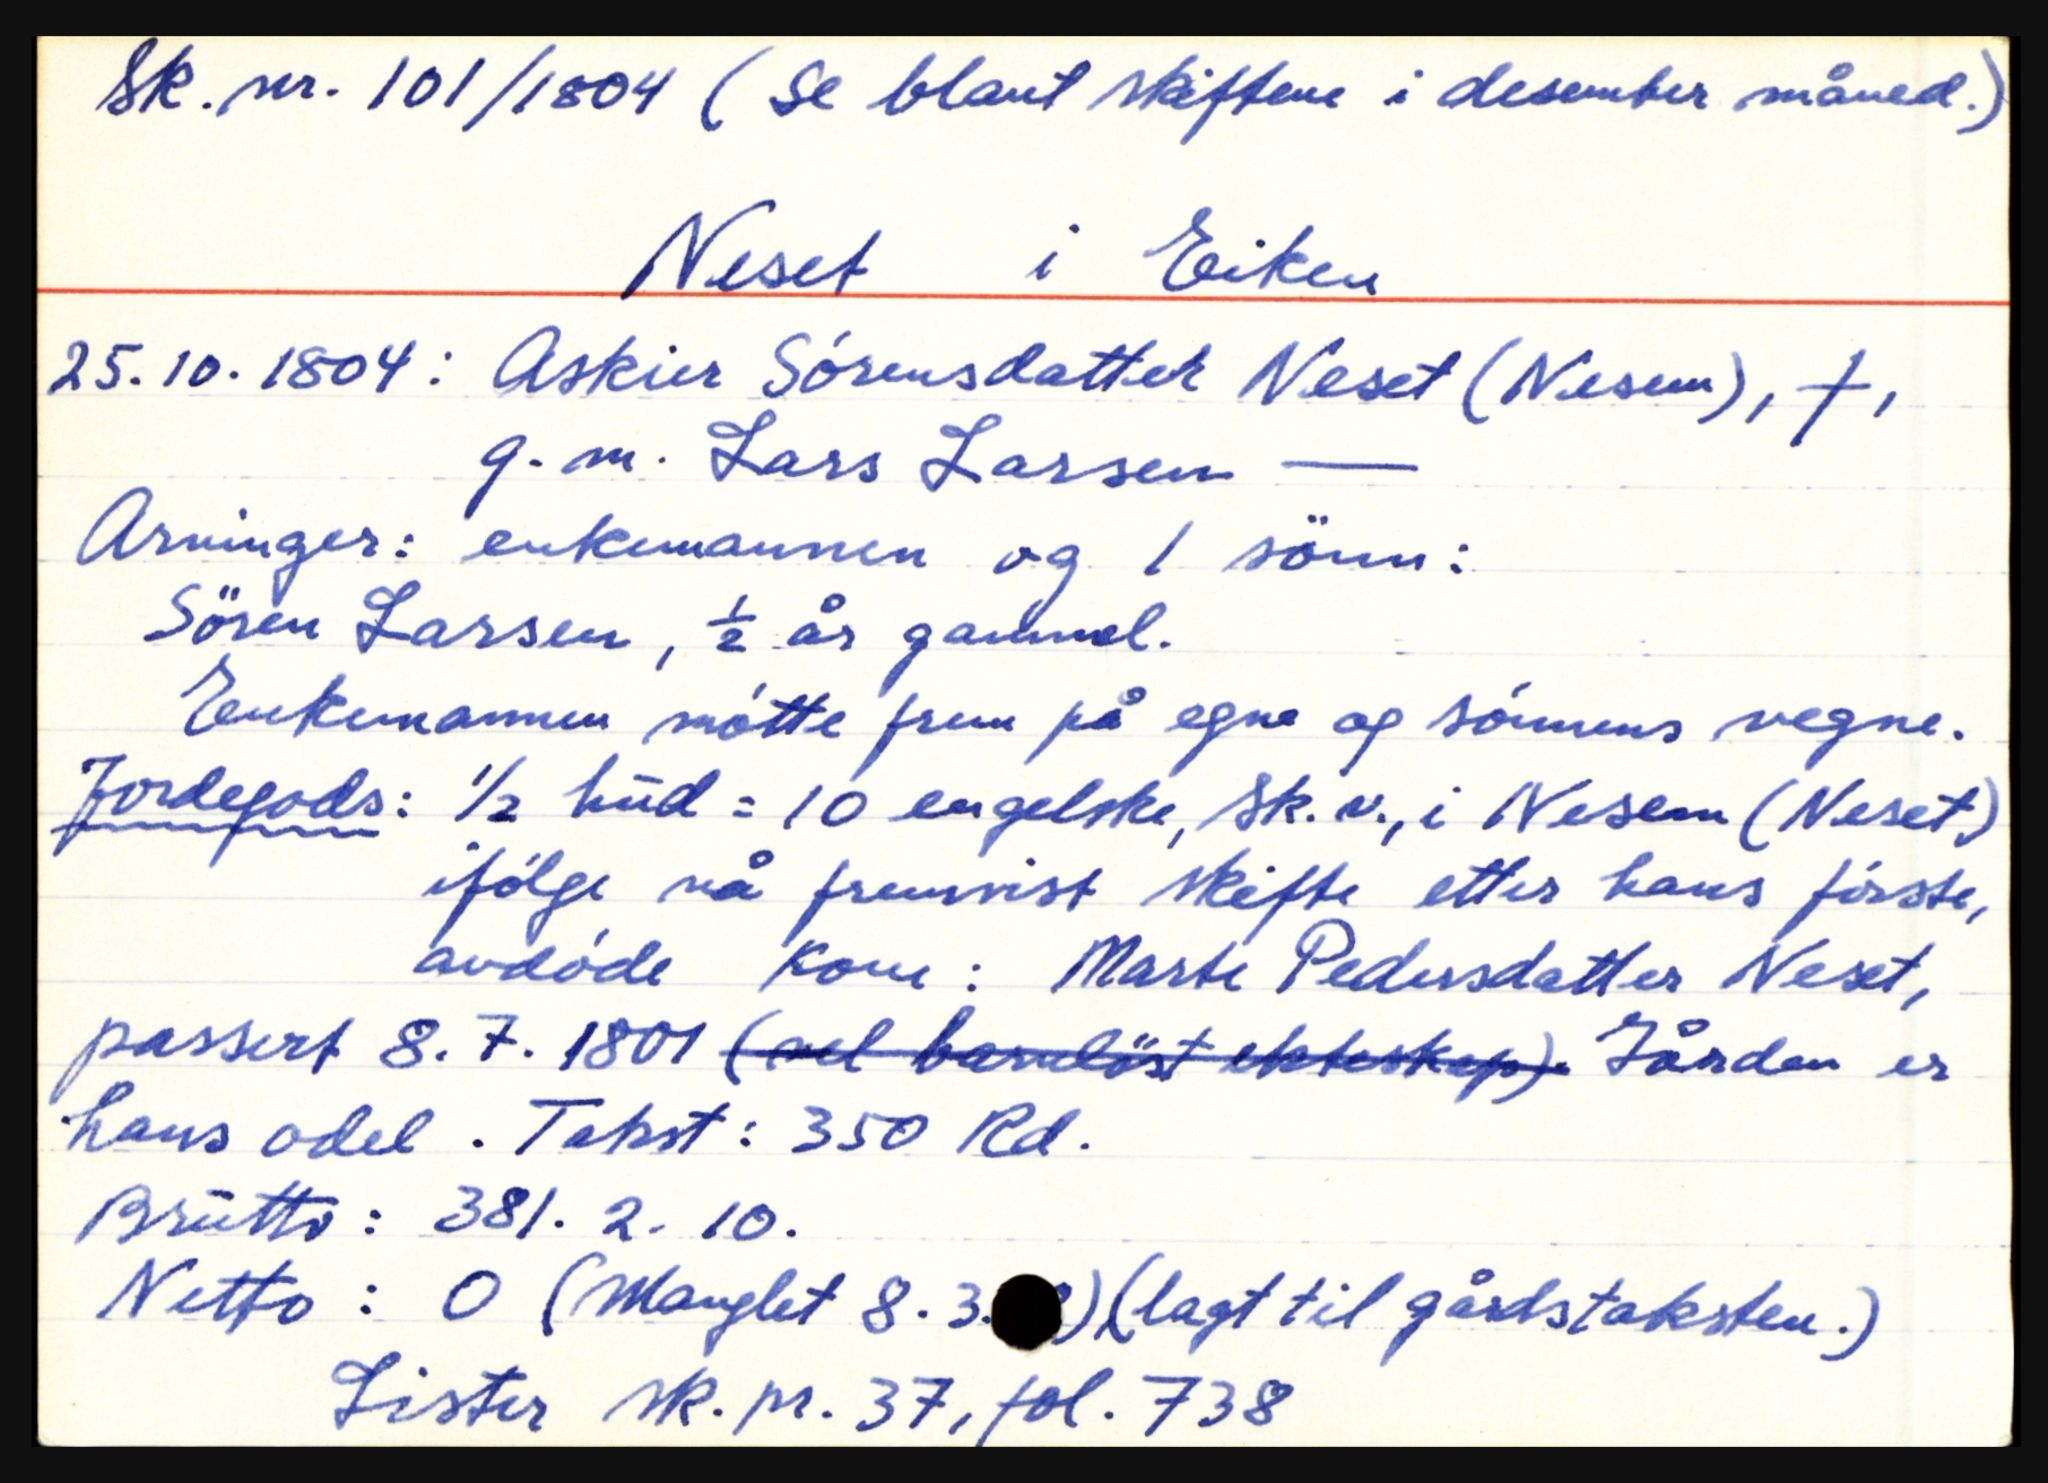 Sk. nr. 101/1804 (Se blant skiftene i desember måned.)
Neset i Eiken
25.10.1804: Askier Sórensdatter Neset (Nesem), †,
g. m. Lars Larsen —
Arvinger: enkemannen og 1 sönn:
Sören Larsen, ½ år gammel.
Enkemannen mótte frem på egne og sónnens vegne.
Jordegods: 1/2 hud = 10 engelske, sk. v., i Nesem (Neset)
ifólge nå fremvist skifte etter hans fórste,
avdóde kone: Marte Pedersdatter Neset,
passert 8.7.1801 (vel barnlöst ekteskap). Gården er
hans odel. Takst: 350 Rd.
Brutto: 381. 2. 10.
Netto: 0 (Manglet 8. 3. ) (lagt til gårdstaksten.)
Lister sk. pr. 37, fol. 738